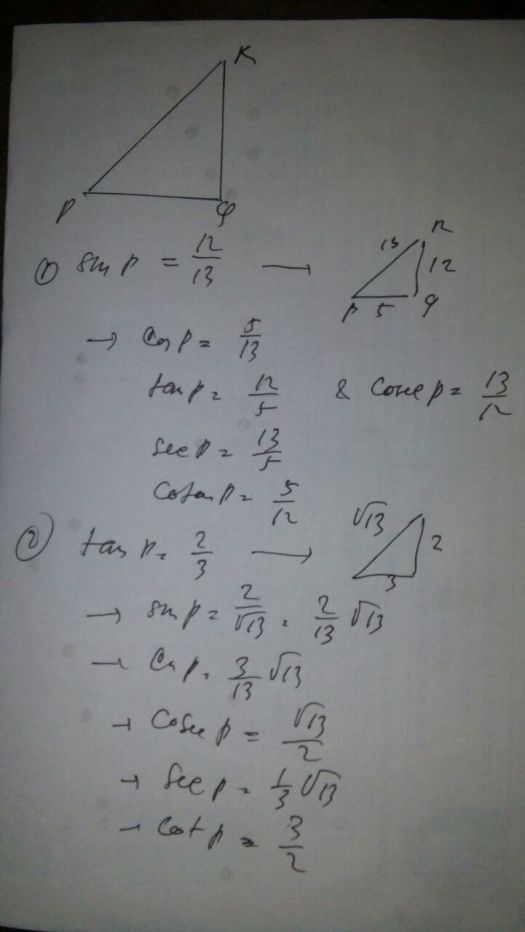 R
P
Q
① sin P = 12/13 → 13 R 12 P 5 Q
→ Cos P = 5/13
tan P = 12/5 & Cosec P = 13/12
Sec P = 13/5
Cotan P = 5/12
② tan P = 2/3 → √13 2 3
→ sin P = 2/√13 = 2/13 √13
→ Cos P = 3/13 √13
→ Cosec P = √13/2
→ Sec P = 1/3 √13
→ Cot P = 3/2